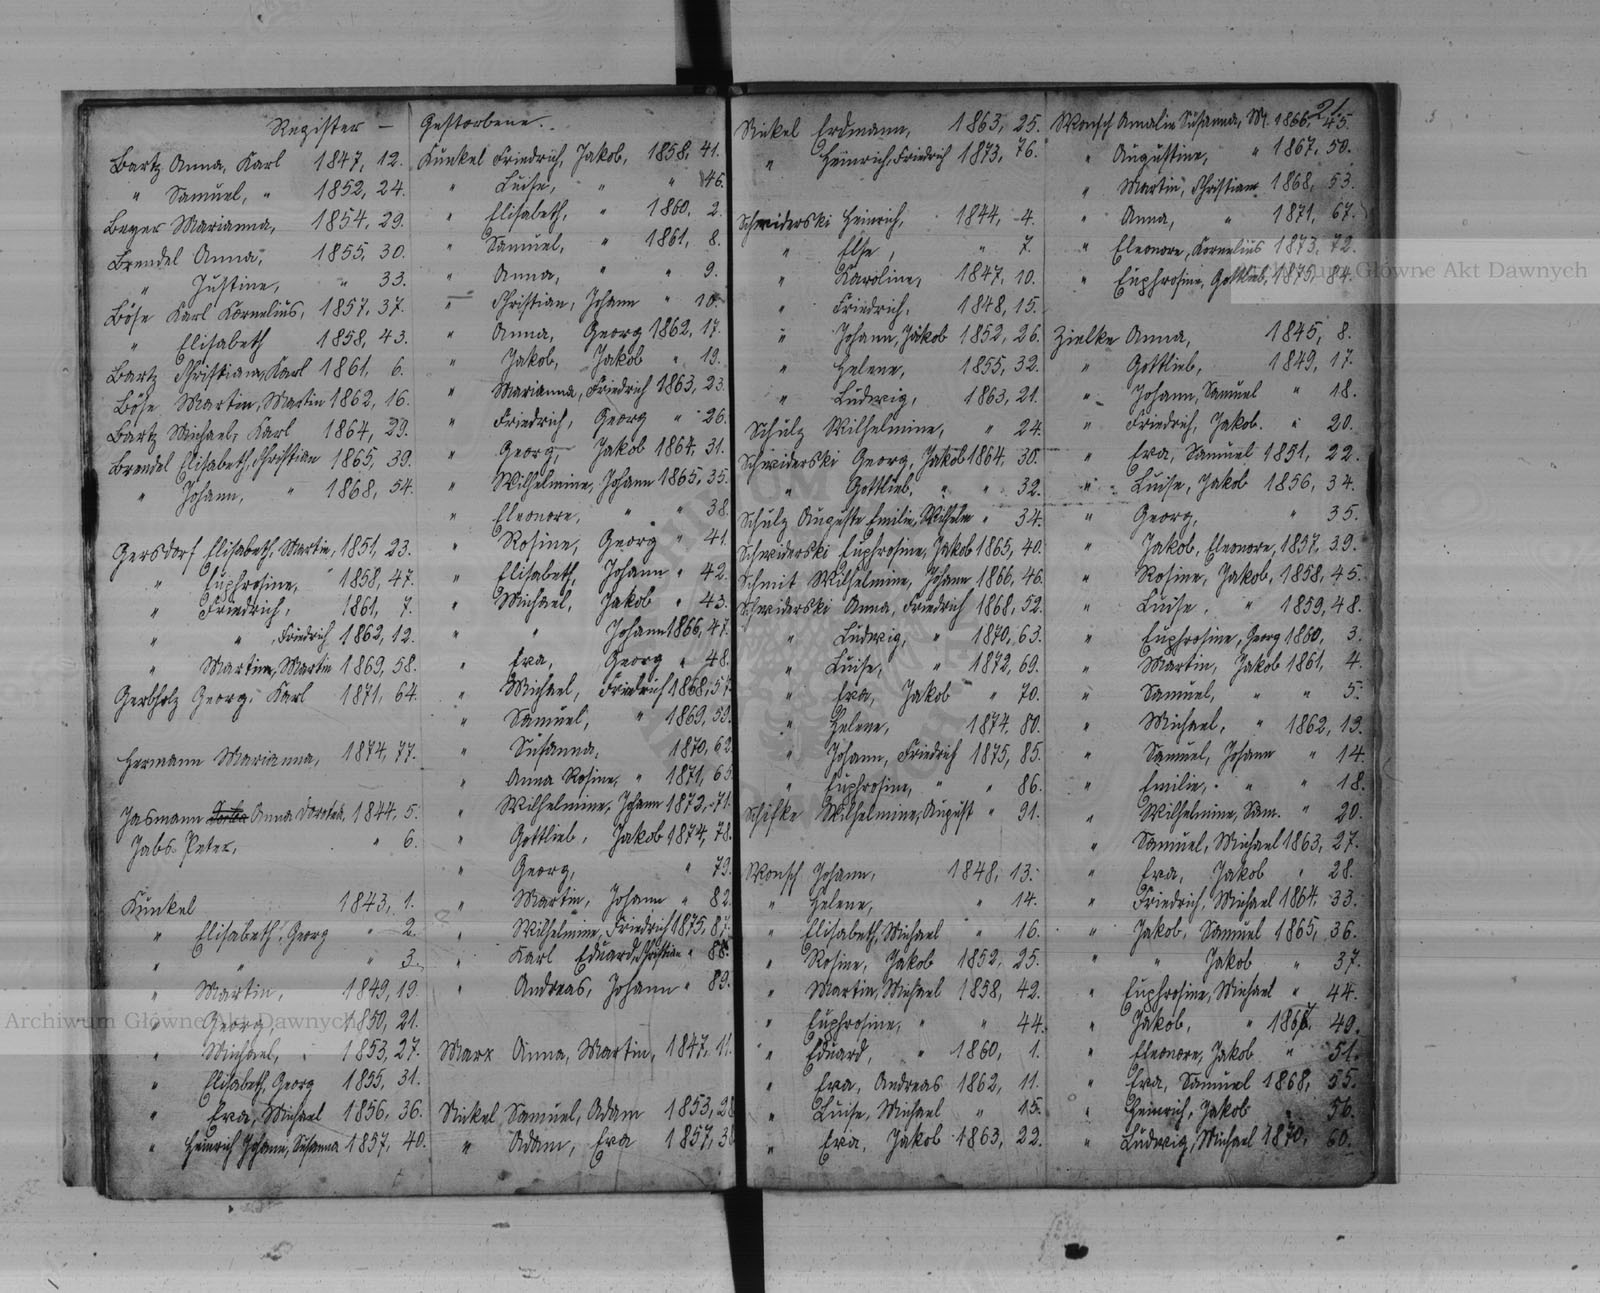 Register — Gestorbene.
Bartz Anna, Karl 1847, 12.
" Samuel, " 1852, 24.
Beyer Marianna, 1854, 29.
Brendel Anna, 1855, 30.
" Justine, " 33.
Böse Karl Kornelius, 1857, 37.
" Elisabeth 1858, 43.
Bartz Christiane, Karl 1861, 6.
Böse Martin, Martin 1862, 16.
Bartz Michael, Karl 1864, 29.
Brendel Elisabeth, Christian 1865, 39.
" Johann, " 1868, 54.
Gersdorf Elisabeth, Martin, 1851, 23.
" Euphrosine, " 1858, 47.
" Friedrich, 1861, 7.
" " , Friedrich 1862, 12.
" Martin, Martin 1869, 58.
Gerbholz Georg, Karl 1871, 64.
Hermann Marianna, 1874, 77.
Jasmann Anna Dorothea, 1844, 5.
Jabs Peter, " 6.
Kunkel 1843, 1.
" Elisabeth, Georg " 2.
" " " 3.
" Martin, 1849, 19.
" Georg 1850, 21.
" Michael, 1853, 27.
" Elisabeth, Georg 1855, 31.
" Eva, Michael 1856, 36.
" Heinrich Johann, Susanna 1857, 40.
Kunkel Friedrich, Jakob, 1858, 41.
" Luise, " " 46.
" Elisabeth, " 1860, 2.
" Samuel, " 1861, 8.
" Anna, " " 9.
" Christian, Johann " 10.
" Anna, Georg 1862, 17.
" Jakob, Jakob " 19.
" Marianna, Friedrich 1863, 23.
" Friedrich, Georg " 26.
" Georg, Jakob 1864, 31.
" Wilhelmine, Johann 1865, 35.
" Eleonore, " " 38.
" Rosine, Georg " 41.
" Elisabeth, Johann " 42.
" Michael, Jakob " 43.
" " Johann 1866, 47.
" Eva, Georg " 48.
" Michael, Friedrich 1868, 57.
" Samuel, " 1869, 59.
" Susanna, 1870, 62.
" Anna Rosine, " 1871, 65.
" Wilhelmine, Johann 1872, 71.
" Gottlieb, Jakob 1874, 78.
" Georg, " 79.
" Martin, Johann " 82.
" Wilhelmine, Friedrich 1875, 87.
" Karl Eduard, Christian " 88.
" Andreas, Johann " 89.
Marx Anna, Martin, 1847, 11.
Nickel Samuel, Adam 1853, 28
" Adam, Eva 1857, 38
21.
Nickel Erdmann, 1863, 25.
" Heinrich, Friedrich 1873, 76.
Schwiderski Heinrich, 1844, 4.
" Else, " 7.
" Karoline, 1847, 10.
" Friedrich, 1848, 15.
" Johann, Jakob 1852, 26.
" Helene, 1855, 32.
" Ludwig, 1863, 21.
Schulz Wilhelmine, " 24.
Schwiderski Georg, Jakob 1864, 30.
" Gottlieb, " " 32.
Schulz Auguste Emilie, Wilhelm " 34.
Schwiderski Euphrosine, Jakob 1865, 40.
Schmit Wilhelmine, Johann 1866, 46.
Schwiderski Anna, Friedrich 1868, 52.
" Ludwig, " 1870, 63.
" Luise, " 1872, 69.
" Eva, Jakob " 70.
" Helene, 1874, 80.
" Johann, Friedrich 1875, 85.
" Euphrosine, " " 86.
Schifke Wilhelmine, August " 91.
Wonsch Johann, 1848, 13.
" Helene, " 14.
" Elisabeth, Michael " 16.
" Rosine, Jakob 1852, 25.
" Martin, Michael 1858, 42.
" Euphrosine, " " 44.
" Eduard, " 1860, 1.
" Eva, Andreas 1862, 11.
" Luise, Michael " 15.
" Eva, Jakob 1863, 22.
Wonsch Amalie Susanna, M. 1866, 45.
" Augustine, " 1867, 50.
" Martin, Christian 1868, 53.
" Anna, " 1871, 67.
" Eleonore, Kornelius 1873, 72.
" Euphrosine, Gottlieb, 1875, 84.
Zielke Anna, 1845, 8.
" Gottlieb, 1849, 17.
" Johann, Samuel " 18.
" Friedrich, Jakob. " 20.
" Eva, Samuel 1851, 22.
" Luise, Jakob 1856, 34.
" Georg, " 35.
" Jakob, Eleonore, 1857, 39.
" Rosine, Jakob, 1858, 45.
" Luise, " 1859, 48.
" Euphrosine, Georg 1860, 3.
" Martin, Jakob 1861, 4.
" Samuel, " " 5.
" Michael, " 1862, 13.
" Samuel, Johann " 14.
" Emilie, " " 18.
" Wilhelmine, Sam. " 20.
" Samuel, Michael 1863, 27.
" Eva, Jakob " 28.
" Friedrich, Michael 1864, 33.
" Jakob, Samuel 1865, 36.
" " Jakob " 37.
" Euphrosine, Michael " 44.
" Jakob, " 1867, 49.
" Eleonore, Jakob " 51.
" Eva, Samuel 1868, 55.
" Heinrich, Jakob " 56.
" Ludwig, Michael 1870, 60.
Archiwum Główne Akt Dawnych
Archiwum Główne Akt Dawnych